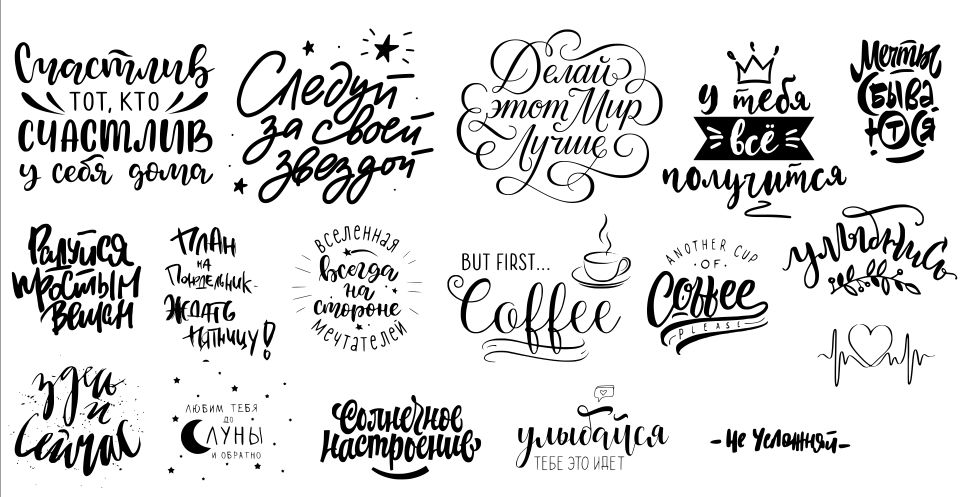 Счастлив
ТОТ, КТО
СЧАСТЛИВ
у себя дома
Следуй
за своей
звездой
Делай
этот Мир
Лучше
у тебя
всё
получится
Мечты
СБЫВА
ЮТСЯ
Радуйся
простым
вещам
ПЛАН
НА
Понедельник-
ЖДАТЬ
ПЯТНИЦУ!
ВСЕЛЕННАЯ
всегда
на
стороне
МЕЧТАТЕЛЕЙ
BUT FIRST...
Coffee
ANOTHER CUP
·OF·
Coffee
PLEASE
улыбнись
здесь
и
Сейчас
ЛЮБИМ ТЕБЯ
ДО
ЛУНЫ
И ОБРАТНО
Солнечное
настроение
улыбайся
ТЕБЕ ЭТО ИДЕТ
-Не Усложняй-